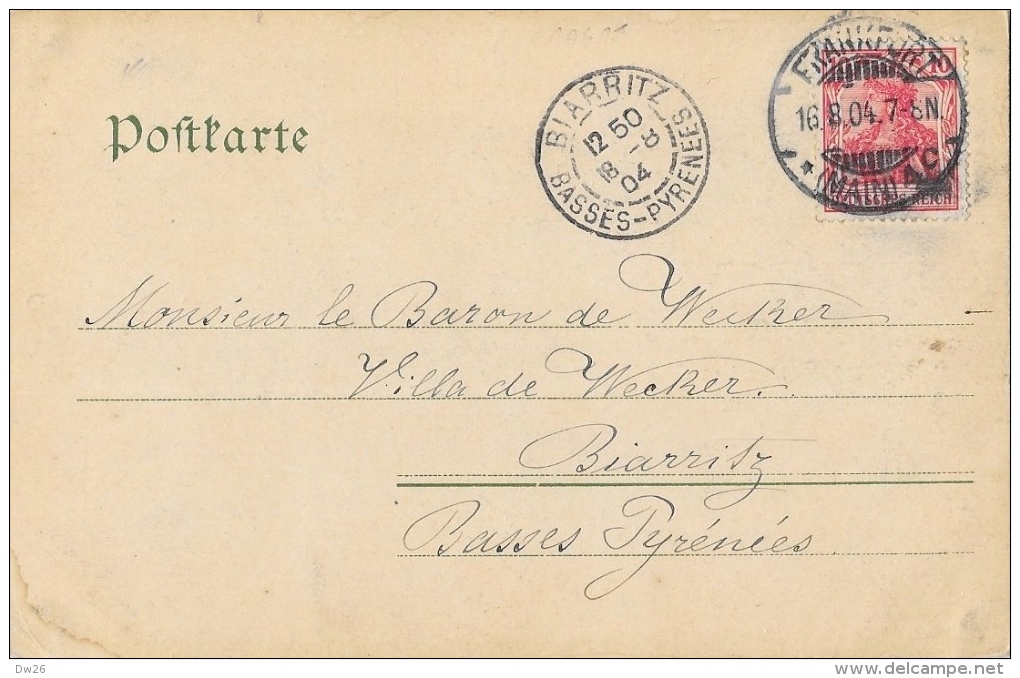 Postkarte
BIARRITZ
12 50
18 -8
04
BASSES-PYRENEES
FRANKFURT
16.8.04.7-8N.
* (MAIN)
10
REICH
Monsieur le Baron de Wecker
Villa de Wecker.
Biarritz
Basses Pyrénées
Dw26
delcampe.net